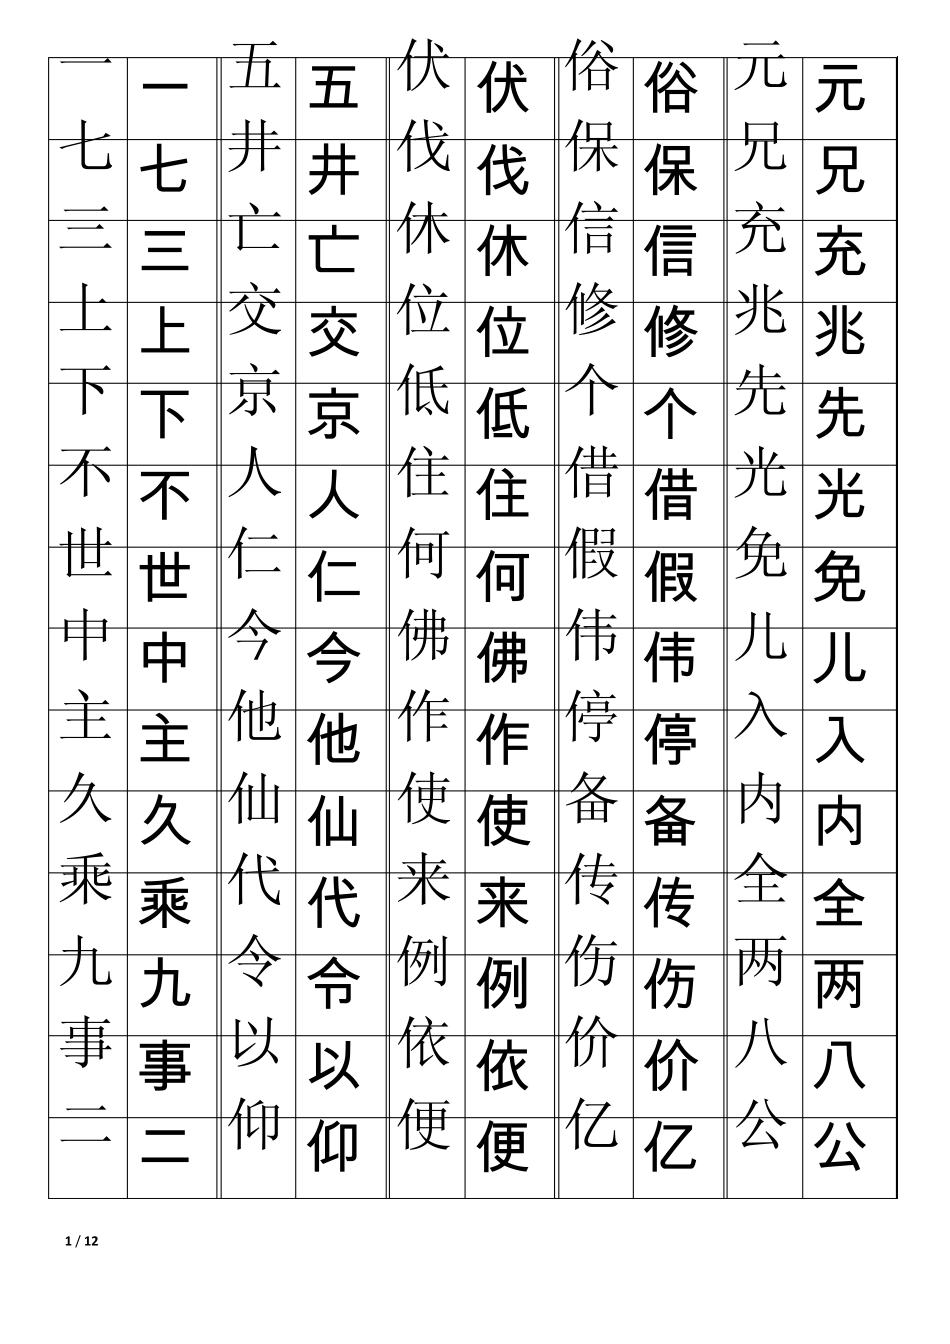 一 一 五 五 伏 伏 俗 俗 元 元
七 七 井 井 伐 伐 保 保 兄 兄
三 三 亡 亡 休 休 信 信 充 充
上 上 交 交 位 位 修 修 兆 兆
下 下 京 京 低 低 个 个 先 先
不 不 人 人 住 住 借 借 光 光
世 世 仁 仁 何 何 假 假 免 免
中 中 今 今 佛 佛 伟 伟 儿 儿
主 主 他 他 作 作 停 停 入 入
久 久 仙 仙 使 使 备 备 内 内
乘 乘 代 代 来 来 传 传 全 全
九 九 令 令 例 例 伤 伤 两 两
事 事 以 以 依 依 价 价 八 八
二 二 仰 仰 便 便 亿 亿 公 公
1 / 12